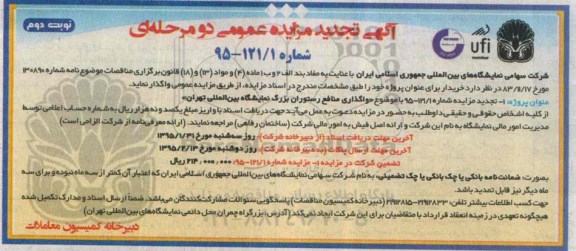 نوبت دوم
آگهی تجدید مزایده عمومی دو مرحله‌ای
شماره ۹۵-۱۲۱/۱
ufi
شرکت سهامی نمایشگاه‌های بین‌المللی جمهوری اسلامی ایران با عنایت به مفاد بند الف و ب ماده (۴) و مواد (۱۳) و (۱۸) قانون برگزاری مناقصات موضوع نامه شماره ۱۳۰۸۹۰
مورخ ۸۳/۹/۱۷ در نظر دارد خریدار برای عنوان پروژه خود را طبق مشخصات مندرج در اسناد مزایده، از طریق مزایده عمومی واگذار نماید.
عنوان پروژه: ۱- تجدید مزایده شماره ۹۵-۱۲۱/۱ با موضوع «واگذاری منافع رستوران بزرگ نمایشگاه بین‌المللی تهران»
از کلیه اشخاص حقوقی و حقیقی داوطلب به حضور در مزایده دعوت به عمل می‌آید جهت دریافت اسناد با واریز مبلغ یکصد و نه هزار ریال به شماره حساب اعلامی توسط
مدیریت امور مالی نمایشگاه به نام این شرکت و ارائه اصل فیش به امور مالی شرکت (ساختمان رفاهی) مراجعه نمایند. (ارائه معرفی‌نامه از شرکت الزامی است)
آخرین مهلت دریافت اسناد (از دبیرخانه شرکت): روز سه‌شنبه مورخ ۱۳۹۵/۱/۳۱
آخرین مهلت ارسال پاکات (به دبیرخانه شرکت): روز دوشنبه مورخ ۱۳۹۵/۲/۱۳
تضمین شرکت در مزایده ۱- مزایده شماره ۹۵-۱۲۱/۱: ۲۱۴،۰۰۰،۰۰۰ ریال
بصورت: ضمانت نامه بانکی یا چک بانکی یا چک تضمینی، به نام شرکت سهامی نمایشگاه‌های بین‌المللی جمهوری اسلامی ایران که اعتبار آن کمتر از سه ماه نبوده و برای سه
ماه دیگر نیز قابل تمدید باشد.
جهت کسب اطلاعات بیشتر تلفن: (دبیرخانه کمیسیون مناقصات) پاسخگویی سئوالات مشارکت‌کنندگان می‌باشد. ضمناً ارسال اسناد و مدارک تکمیل شده
هیچگونه تعهدی در زمینه انعقاد قرارداد با متقاضیان برای این شرکت ایجاد نمی‌کند (آدرس: بزرگراه چمران محل دائمی نمایشگاه‌های بین‌المللی تهران)
دبیرخانه کمیسیون معاملات